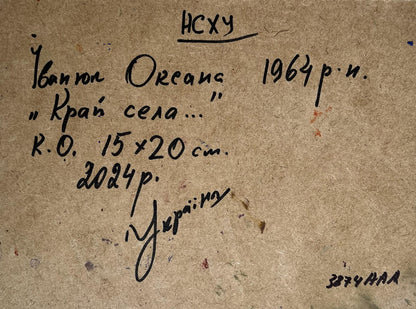 НСХУ
Іванюк Оксана 1964 р.н.
„Край села..."
К.О. 15×20 см.
2024 р.
Україна
3874ААА